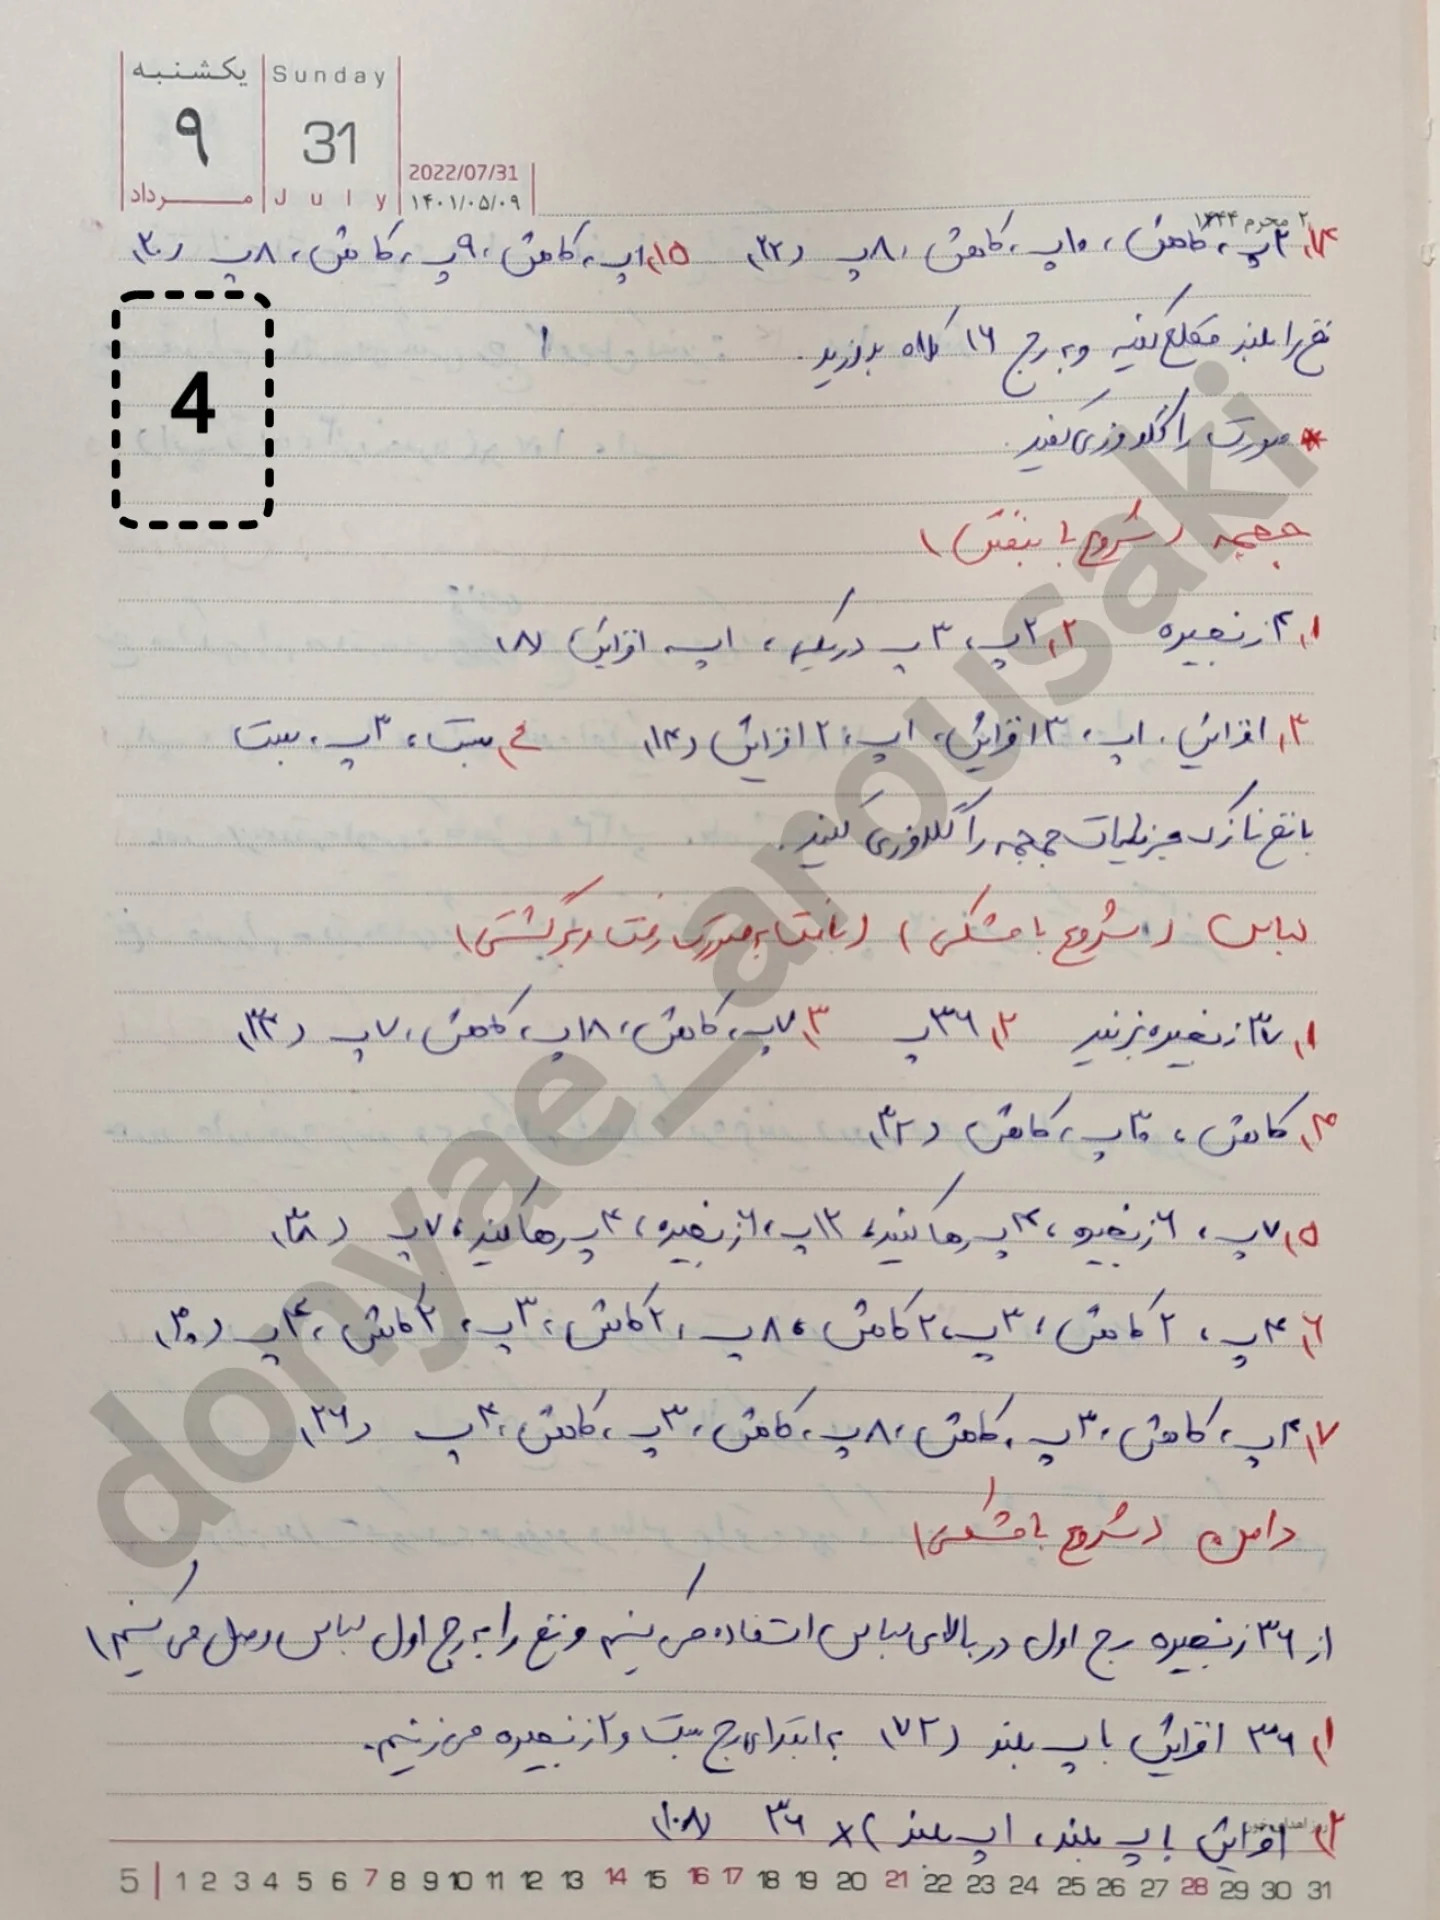 یکشنبه
Sunday
۹
31
2022/07/31
مرداد
July
۱۴۰۱/۰۵/۰۹
۲ محرم ۱۴۴۴
۱۴) ۲پ، کاهش، ۱۰پ، کاهش، ۸پ (۳۲) ۱۵) ۱پ، کاهش، ۹پ، کاهش، ۸پ (۳۰)
نخ را بلند قطع کنید و به رج ۱۶ کلاه بدوزید.
4
* صورت را گلدوزی کنید.
جمجمه (شروع با بنفش)
۱) ۴ زنجیره ۲) ۲پ، ۳پ در یکی، ۱پ افزایش (۸)
۳) افزایش، ۱پ، ۳ افزایش، ۱پ، ۲ افزایش (۱۴) ۴) بست، ۳پ، بست
با نخ نازک جزئیات جمجمه را گلدوزی کنید.
لباس (شروع با مشکی) (بافت به صورت رفت و برگشتی)
۱) ۳۷ زنجیره بزنید ۲) ۳۶پ ۳) ۷پ، کاهش، ۱۸پ، کاهش، ۷پ (۳۴)
۴) کاهش، ۳۰پ، کاهش (۳۲)
۵) ۷پ، ۶ زنجیره، ۴پ رها کنید، ۱۲پ، ۶ زنجیره، ۴پ رها کنید، ۷پ (۳۸)
۶) ۴پ، ۲ کاهش، ۳پ، ۲ کاهش، ۸پ، ۲ کاهش، ۳پ، ۲ کاهش، ۴پ (۳۰)
۷) ۴پ، کاهش، ۳پ، کاهش، ۸پ، کاهش، ۳پ، کاهش، ۴پ (۲۶)
دامن (شروع با مشکی)
از ۳۶ زنجیره رج اول در بالای لباس استفاده می کنیم و نخ را به رج اول لباس وصل می کنیم)
۱) ۳۶ افزایش با پ بلند (۷۲) به ابتدای رج بست و ۲ زنجیره می زنیم.
۲) افزایش با پ بلند، ۱پ بلند) × ۳۶ (۱۰۸)
5 | 1 2 3 4 5 6 7 8 9 10 11 12 13 14 15 16 17 18 19 20 21 22 23 24 25 26 27 28 29 30 31
donyae_arousaki